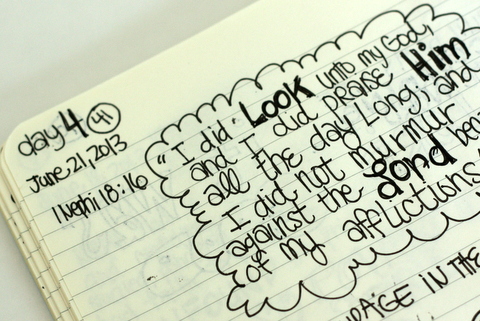 day 4 41
June 21, 2013
1 Nephi 18:16
"I did Look unto my God,
and I did praise Him
all the day Long; and
I did not murmur
against the Lord
of my afflictions
IN THE